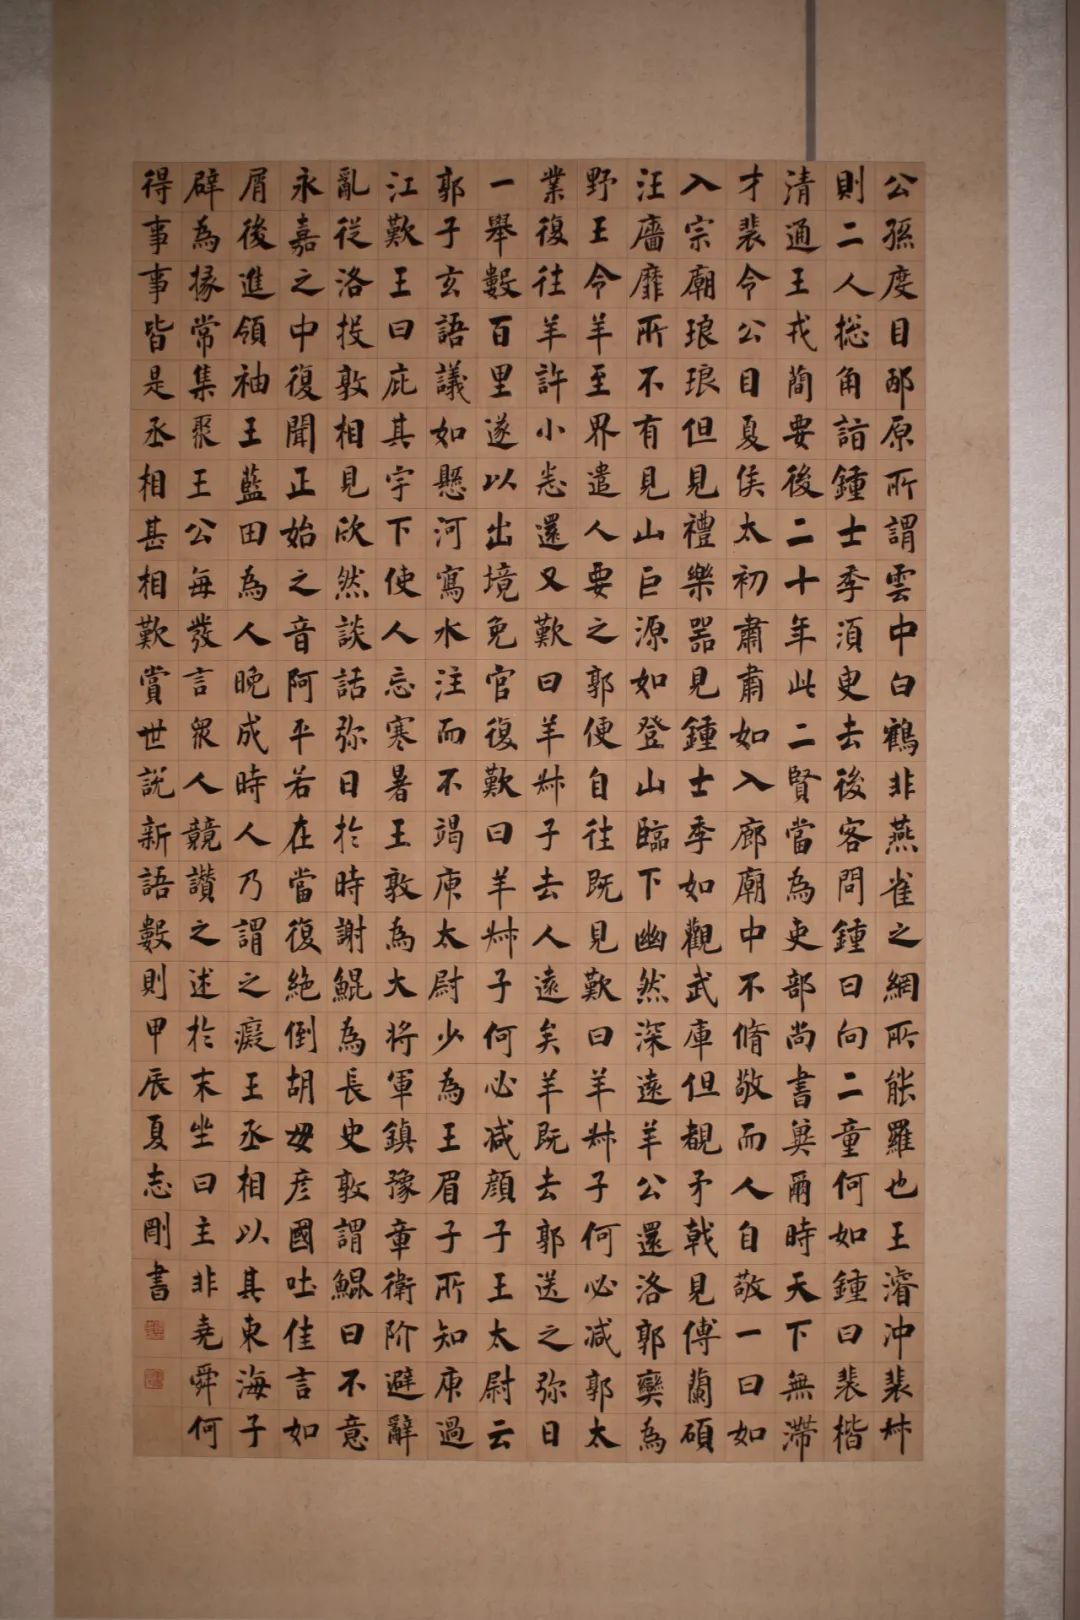 公孫度目邴原所謂雲中白鶴非燕雀之網所能羅也王濬沖裴叔
則二人捴角詣鍾士季須臾去後客問鍾曰向二童何如鍾曰裴楷
清通王戎簡要後二十年此二賢當為吏部尚書冀爾時天下無滯
才裴令公目夏侯太初肅肅如入廊廟中不脩敬而人自敬一曰如
入宗廟琅琅但見禮樂器見鍾士季如觀武庫但覩矛戟見傅蘭碩
汪廧靡所不有見山巨源如登山臨下幽然深遠羊公還洛郭奕為
野王令羊至界遣人要之郭便自往既見歎曰羊叔子何必減郭太
業復往羊許小悉還又歎曰羊叔子去人遠矣羊既去郭送之弥日
一舉數百里遂以出境免官復歎曰羊叔子何必減顏子王太尉云
郭子玄語議如懸河寫水注而不竭庾太尉少為王眉子所知庾過
江歎王曰庇其宇下使人忘寒暑王敦為大將軍鎮豫章衛階避辭
亂從洛投敦相見欣然談話弥日於時謝鯤為長史敦謂鯤曰不意
永嘉之中復聞正始之音阿平若在當復絶倒胡毋彦國吐佳言如
屑後進領袖王藍田為人晚成時人乃謂之癡王丞相以其東海子
辟為掾常集聚王公每發言衆人競讚之述於末坐曰主非堯舜何
得事事皆是丞相甚相歎賞世説新語數則甲辰夏志剛書